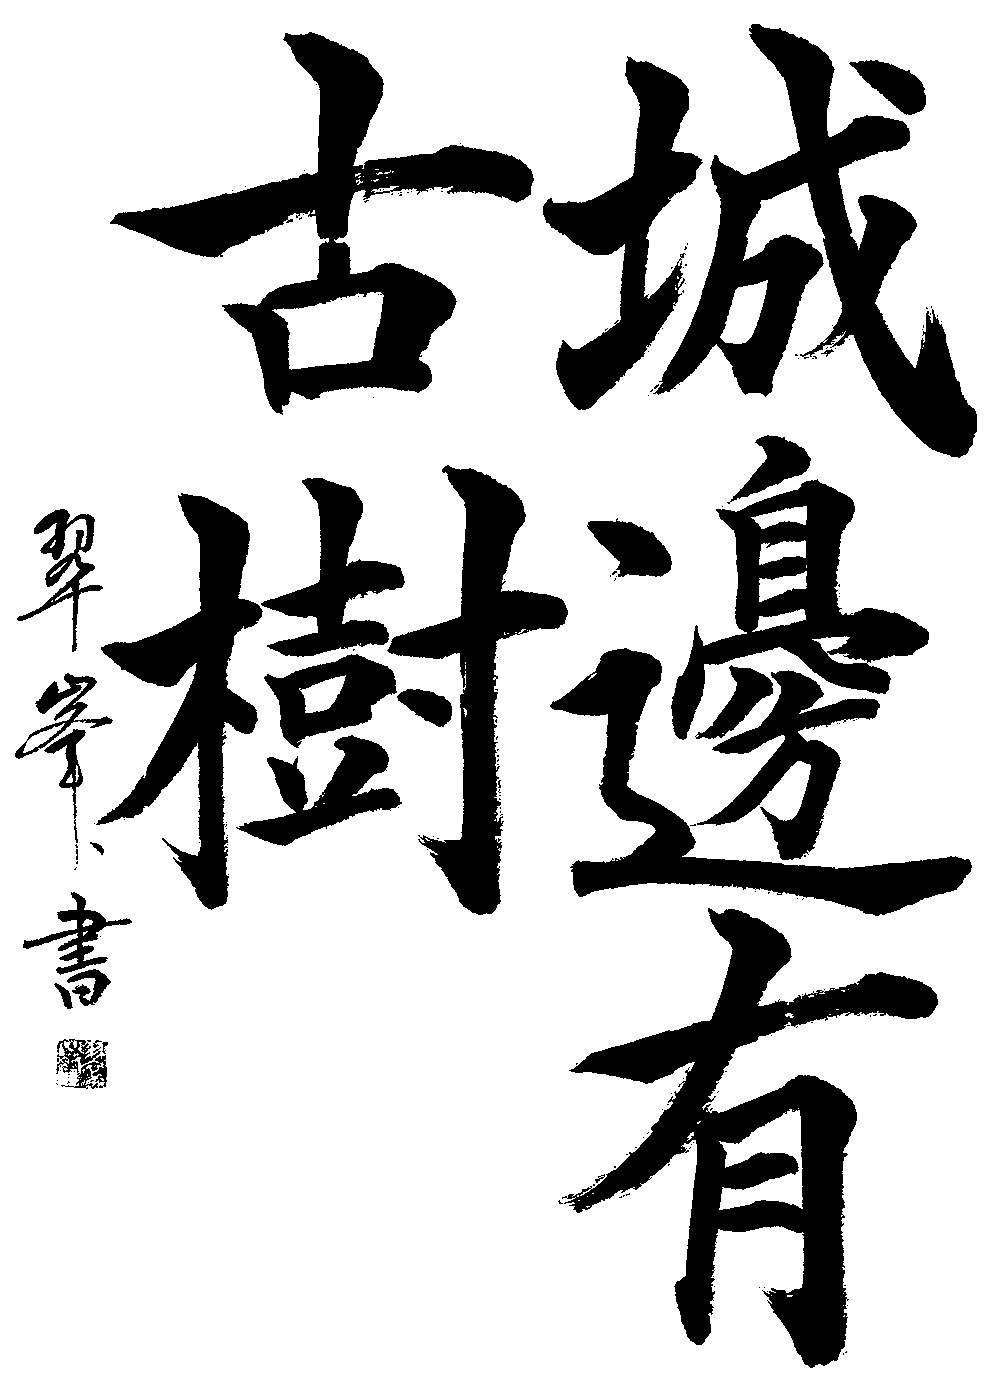 城邊有
古樹
翠峯書